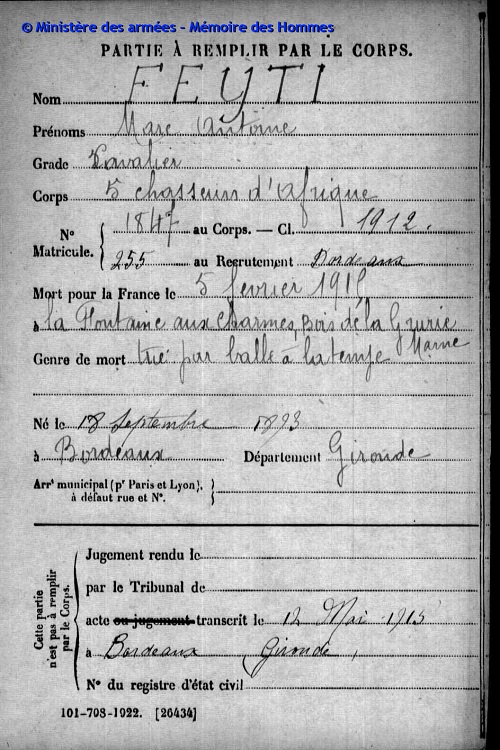 © Ministère des armées - Mémoire des Hommes
PARTIE À REMPLIR PAR LE CORPS.
Nom FEYTI
Prénoms Marc Antoine
Grade Cavalier
Corps 5 chasseurs d'afrique
N° Matricule. { 1847 au Corps. — Cl. 1912.
255 au Recrutement Bordeaux
Mort pour la France le 5 fevrier 1915
à la Fontaine aux Charmes, Bois de la Grurie
Marne
Genre de mort tué par balle à la tempe
Né le 18 Septembre 1893
à Bordeaux Département Gironde
Arrt municipal (pr Paris et Lyon),
à défaut rue et N°.
Cette partie n'est pas à remplir par le Corps.
Jugement rendu le
par le Tribunal de
acte ou jugement transcrit le 12 Mai 1915
à Bordeaux Gironde
N° du registre d'état civil
101-708-1922. [26434]